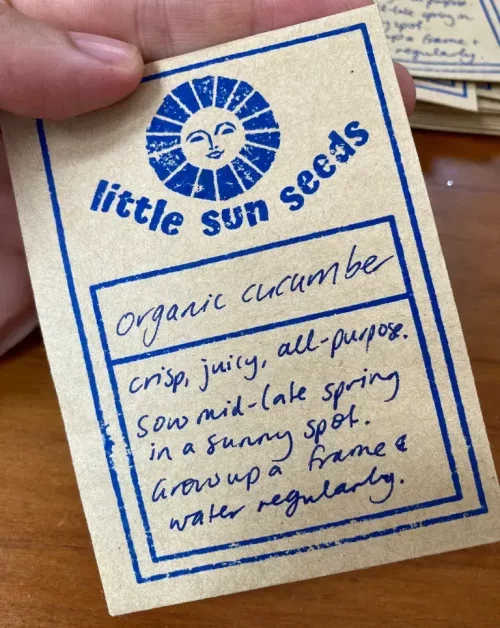 little sun seeds
organic cucumber
crisp, juicy, all-purpose.
sow mid-late spring
in a sunny spot.
Grow up a frame &
water regularly.
-late spring in
spot.
frame &
regularly.